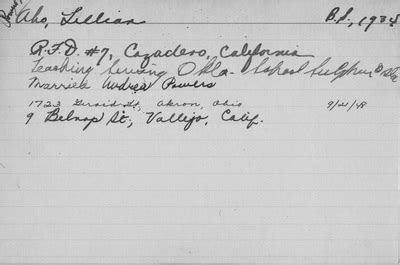 Aho, Lillian B.S., 1934
R.F.D. #7, Cazadero, California
Teaching Sewing Okla. School Sulphur, Okla
Married Andrew Powers
1723 St, Akron, Ohio 9/21/48
9 Belnap St, Vallejo, Calif.